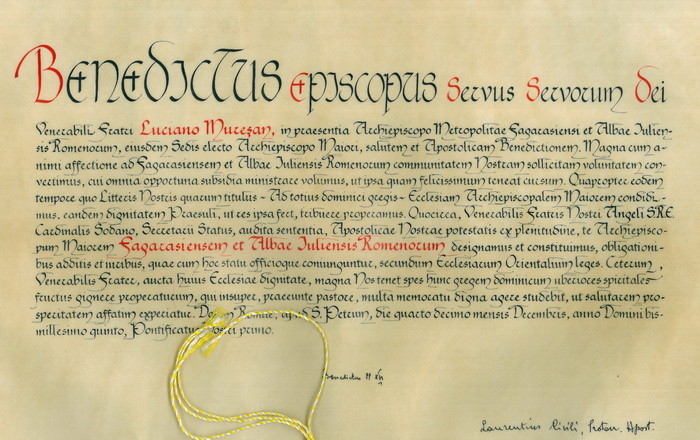 Benedictus Episcopus Servus Servorum Dei
Venerabili Fratri Luciano Mureşan, in praesentia Archiepiscopo Metropolitae Fagarasiensi et Albae Iulien-
sis Romenorum, eiusdem Sedis electo Archiepiscopo Maiori, salutem et Apostolicam Benedictionem. Magna cum a-
nimi affectione ad Fagarasiensem et Albae Iuliensis Romenorum communitatem Nostram sollicitam voluntatem con-
vertimus, cui omnia opportuna subsidia ministrare volumus, ut ipsa quam felicissimum teneat cursum. Quapropter eodem
tempore quo Litteris Nostris quarum titulus - Ad totius dominici gregis - Ecclesiam Archiepiscopalem Maiorem condidi-
mus, eandem dignitatem Praesuli, ut res ipsa fert, tribuere properamus. Quocirca, Venerabilis Fratris Nostri Angeli S.R.E.
Cardinalis Sodano, Secretarii Status, audita sententia, Apostolicae Nostrae potestatis ex plenitudine, te Archiepisco-
pum Maiorem Fagarasiensem et Albae Iuliensis Romenorum designamus et constituimus, obligationi-
bus additis et iuribus, quae cum hoc statu officioque coniunguntur, secundum Ecclesiarum Orientalium leges. Ceterum,
Venerabilis Frater, aucta huius Ecclesiae dignitate, magna Nos tenet spes hunc gregem dominicum uberiores spiritales
fructus gignere properaturum, qui insuper, praeeunte pastore, multa memoratu digna agere studebit, ut salutarem pro-
speritatem affatim experiatur. Datum Romae, apud S. Petrum, die quarto decimo mensis Decembris, anno Domini bis-
millesimo quinto, Pontificatus Nostri primo.
Benedictus PP XVI
Laurentius Civili, Proton. Apost.